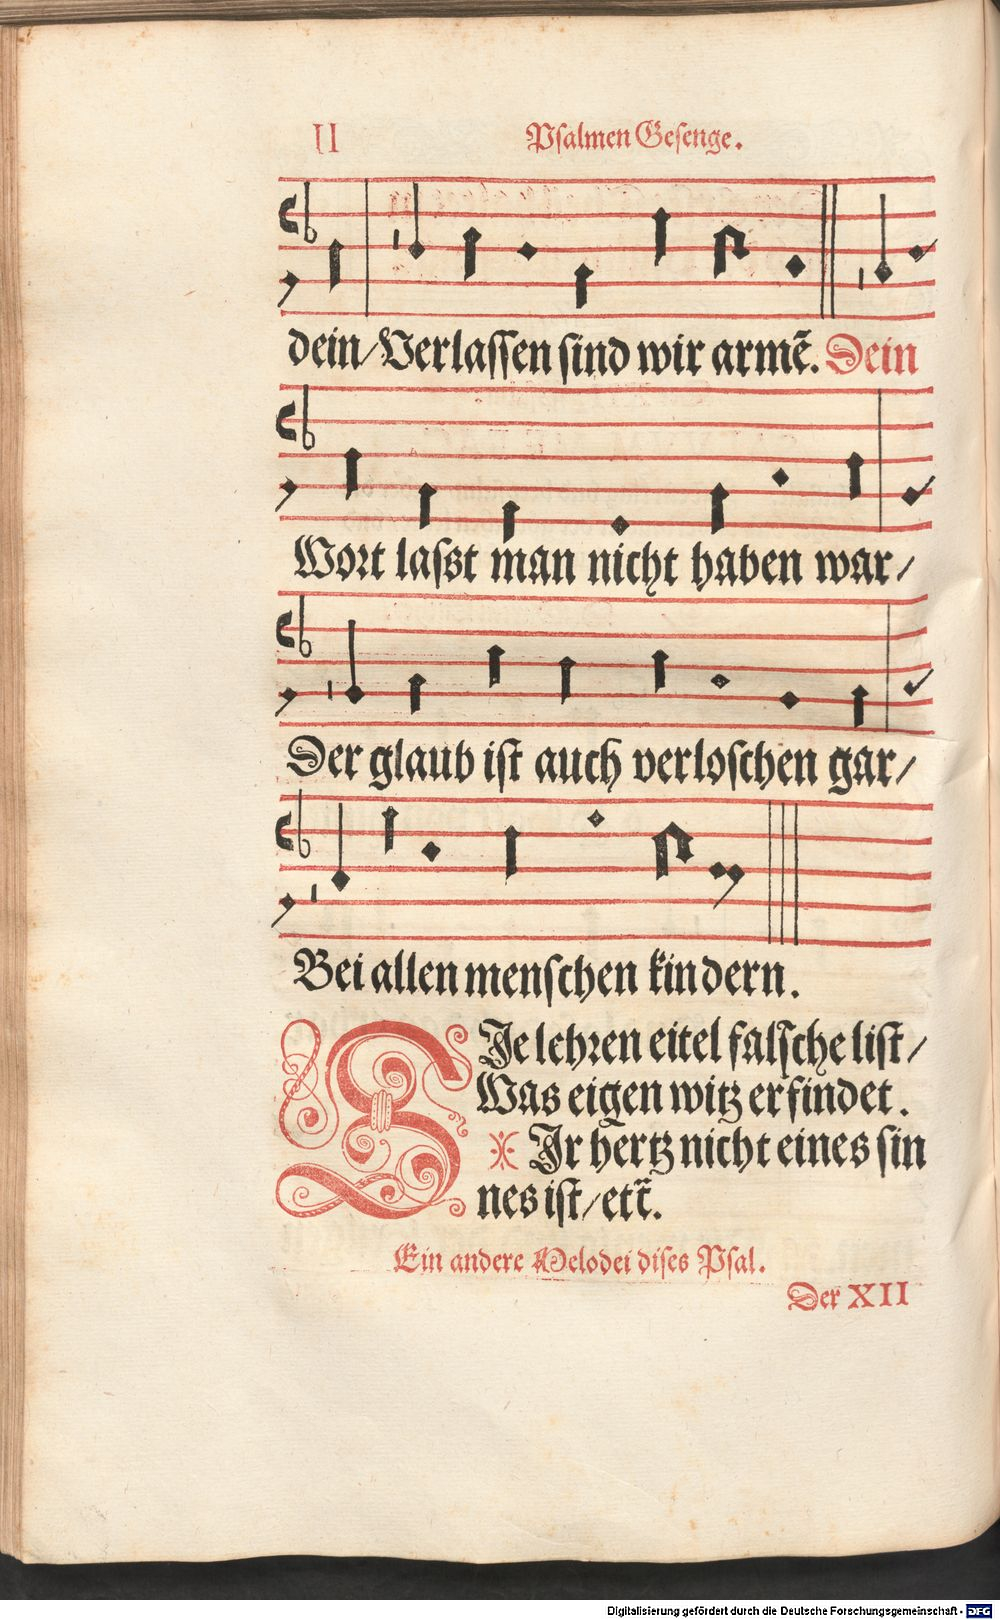 II Psalmen Gesenge.
dein/Verlassen sind wir armẽ. Dein
Wort lasst man nicht haben war/
Der glaub ist auch verloschen gar/
Bei allen menschen kindern.
SJe lehren eitel falsche list/
Was eigen witz erfindet.
Jr hertz nicht eines sin
nes ist/etc̃.
Ein andere Melodei dises Psal.
Der XII
Digitalisierung gefördert durch die Deutsche Forschungsgemeinschaft - DFG